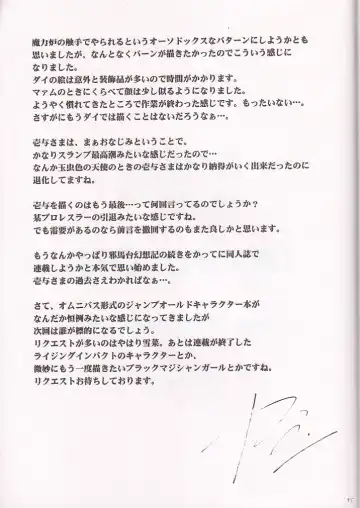 魔力炉の触手でやられるというオーソドックスなパターンにしようかとも
思いましたが、なんとなくバーンが描きたかったのでこういう感じに
なりました。
ダイの絵は意外と装飾品が多いので時間がかかります。
マァムのときにくらべて顔は少し似るようになりました。
ようやく慣れてきたところで作業が終わった感じです。もったいない…。
さすがにもうダイでは描くことはないだろうなぁ…。
壱与さまは、まぁおなじみということで、
かなりスランプ最高潮みたいな感じだったので…
なんか玉虫色の天使のときの壱与さまはかなり納得がいく出来だったのに
退化してますね。
壱与を描くのはもう最後…って何回言ってるのでしょうか？
某プロレスラーの引退みたいな感じです。
でも需要があるのなら前言を撤回するのもまた良しかと思います。
もうなんかやっぱり邪馬台幻想記の続きをかってに同人誌で
連載しようかと本気で思い始めました。
壱与さまの過去さえわかればなぁ…。
さて、オムニバス形式のジャンプオールドキャラクター本が
なんだか恒例みたいな感じになってきましたが
次回は誰が標的になるでしょう。
リクエストが多いのはやはり雪菜。あとは連載が終了した
ライジングインパクトのキャラクターとか、
微妙にもう一度描きたいブラックマジシャンガールとかですね。
リクエストお待ちしております。